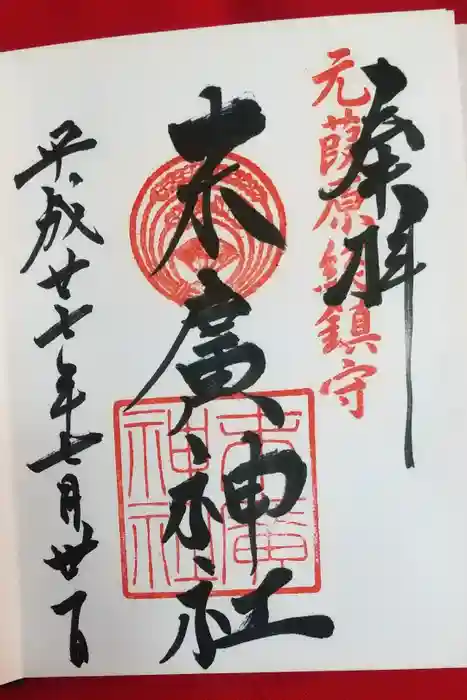 奉拝
元葭原総鎮守
末廣神社
末廣神社
平成廿七年七月廿一日